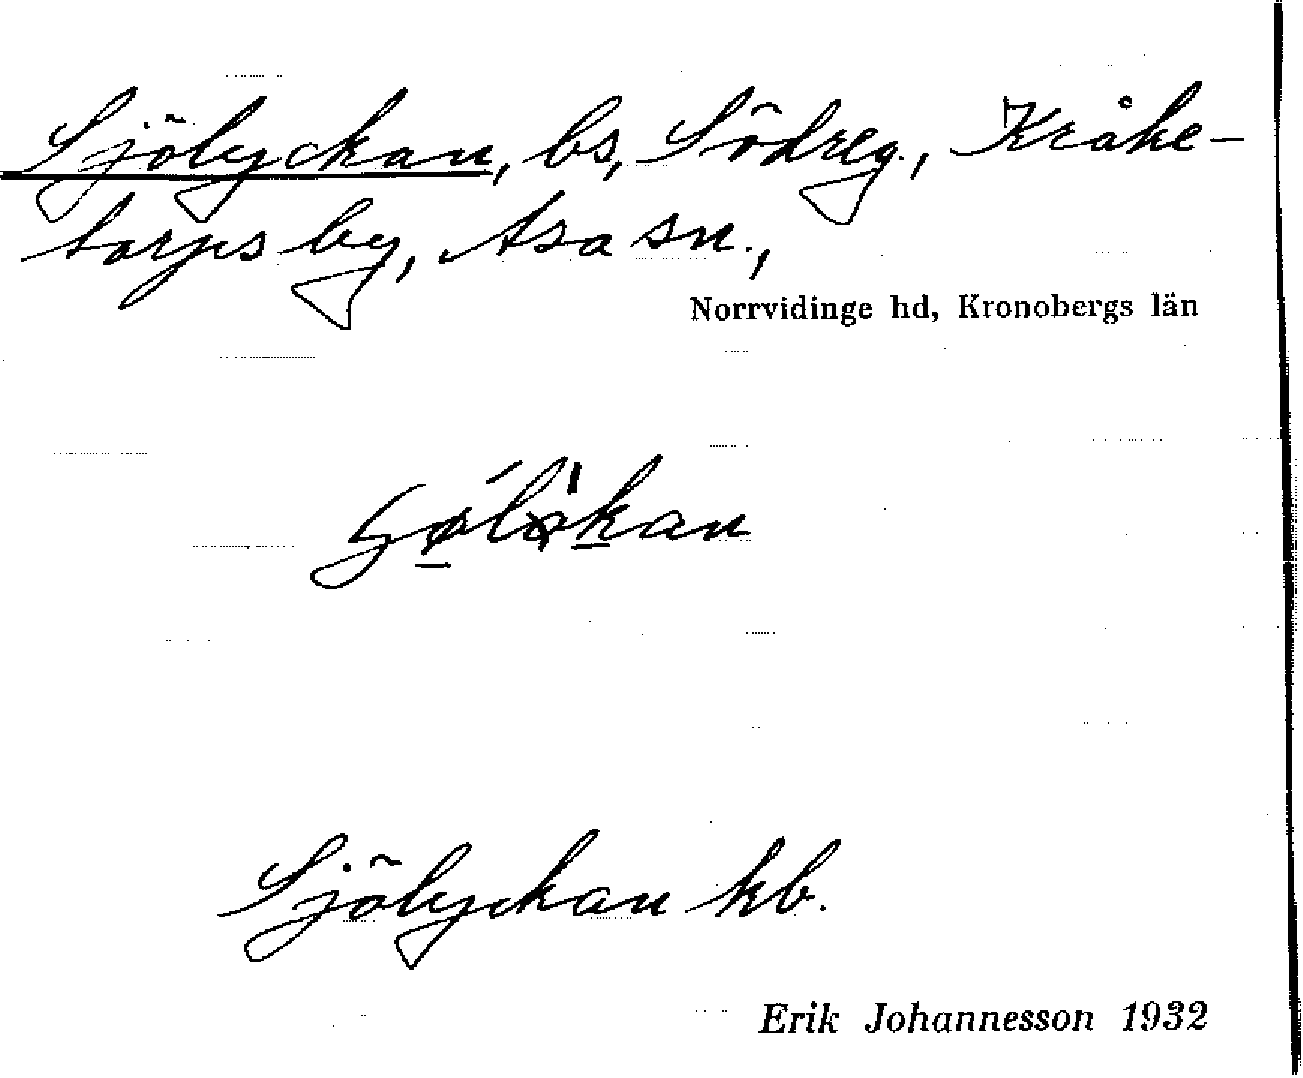 Sjölyckan, bs, Södreg., Kråke-
torps by, Asa sn.,
Norrvidinge hd, Kronobergs län
Sjölyckan kb.
Erik Johannesson 1932